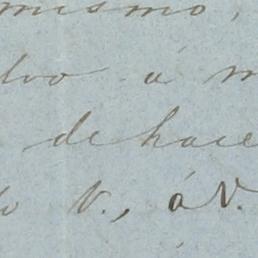 mismo,
lvo á m
de hace
o V., á V.